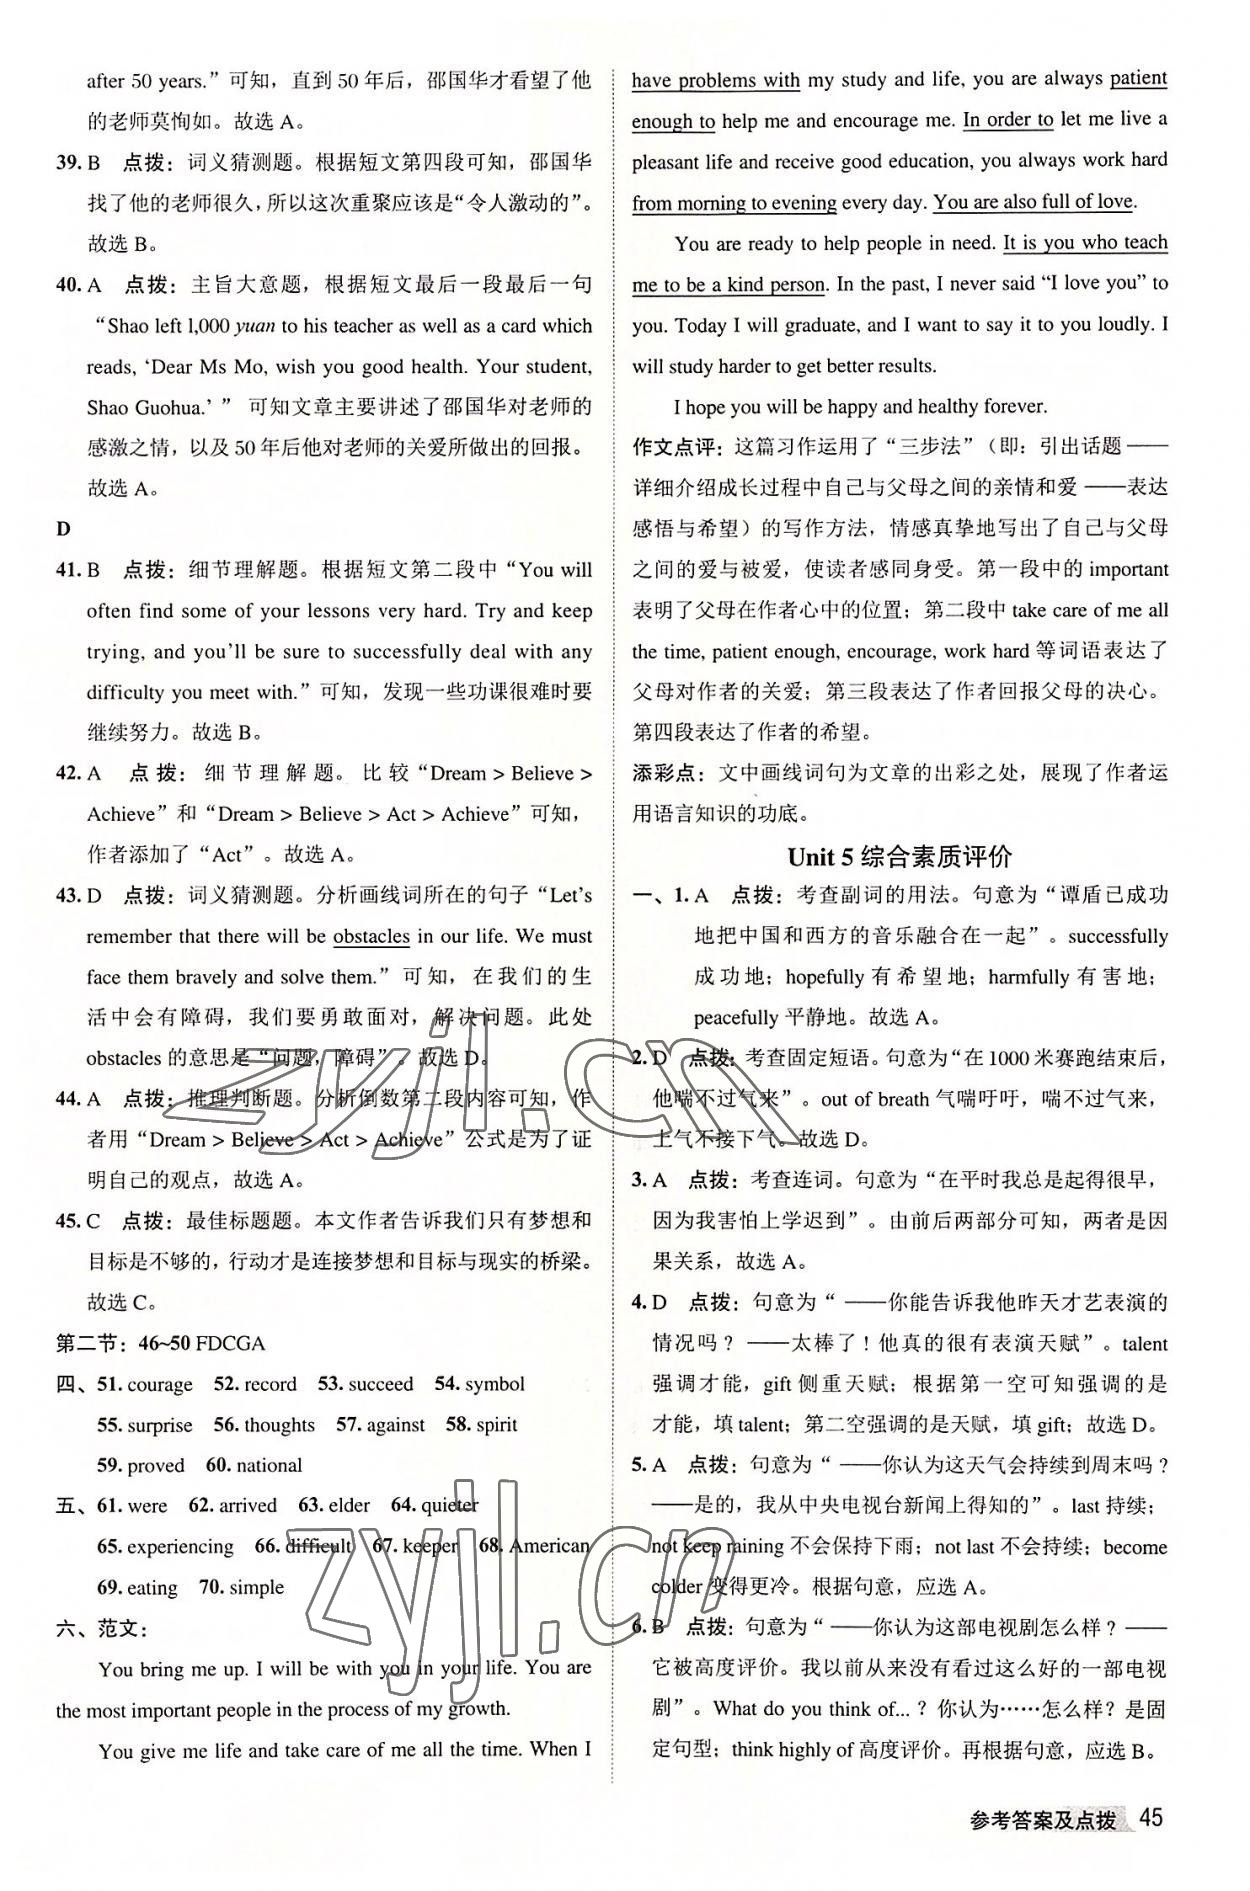 after 50 years.”可知，直到 50 年后，邵国华才看望了他
的老师莫恂如。故选 A。
39. B 点拨：词义猜测题。根据短文第四段可知，邵国华
找了他的老师很久，所以这次重聚应该是“令人激动的”。
故选 B。
40. A 点拨：主旨大意题，根据短文最后一段最后一句
“Shao left 1,000 yuan to his teacher as well as a card which
reads, ‘Dear Ms Mo, wish you good health. Your student,
Shao Guohua.’ ” 可知文章主要讲述了邵国华对老师的
感激之情，以及 50 年后他对老师的关爱所做出的回报。
故选 A。
D
41. B 点拨：细节理解题。根据短文第二段中“You will
often find some of your lessons very hard. Try and keep
trying, and you’ll be sure to successfully deal with any
difficulty you meet with.”可知，发现一些功课很难时要
继续努力。故选 B。
42. A 点拨：细节理解题。比较“Dream > Believe >
Achieve”和“Dream > Believe > Act > Achieve”可知，
作者添加了“Act”。故选 A。
43. D 点拨：词义猜测题。分析画线词所在的句子“Let’s
remember that there will be obstacles in our life. We must
face them bravely and solve them.”可知，在我们的生
活中会有障碍，我们要勇敢面对，解决问题。此处
obstacles 的意思是“问题，障碍”。故选 D。
44. A 点拨：推理判断题。分析倒数第二段内容可知，作
者用“Dream > Believe > Act > Achieve”公式是为了证
明自己的观点，故选 A。
45. C 点拨：最佳标题题。本文作者告诉我们只有梦想和
目标是不够的，行动才是连接梦想和目标与现实的桥梁。
故选 C。
第二节：46~50 FDCGA
四、51. courage 52. record 53. succeed 54. symbol
55. surprise 56. thoughts 57. against 58. spirit
59. proved 60. national
五、61. were 62. arrived 63. elder 64. quieter
65. experiencing 66. difficult 67. keeper 68. American
69. eating 70. simple
六、范文：
You bring me up. I will be with you in your life. You are
the most important people in the process of my growth.
You give me life and take care of me all the time. When I
have problems with my study and life, you are always patient
enough to help me and encourage me. In order to let me live a
pleasant life and receive good education, you always work hard
from morning to evening every day. You are also full of love.
You are ready to help people in need. It is you who teach
me to be a kind person. In the past, I never said “I love you” to
you. Today I will graduate, and I want to say it to you loudly. I
will study harder to get better results.
I hope you will be happy and healthy forever.
作文点评：这篇习作运用了“三步法”（即：引出话题 ——
详细介绍成长过程中自己与父母之间的亲情和爱 ——表达
感悟与希望）的写作方法，情感真挚地写出了自己与父母
之间的爱与被爱，使读者感同身受。第一段中的 important
表明了父母在作者心中的位置；第二段中 take care of me all
the time, patient enough, encourage, work hard 等词语表达了
父母对作者的关爱；第三段表达了作者回报父母的决心。
第四段表达了作者的希望。
添彩点：文中画线词句为文章的出彩之处，展现了作者运
用语言知识的功底。
Unit 5 综合素质评价
一、1. A 点拨：考查副词的用法。句意为“谭盾已成功
地把中国和西方的音乐融合在一起”。successfully
成功地；hopefully 有希望地；harmfully 有害地；
peacefully 平静地。故选 A。
2. D 点拨：考查固定短语。句意为“在 1000 米赛跑结束后，
他喘不过气来”。out of breath 气喘吁吁，喘不过气来，
上气不接下气。故选 D。
3. A 点拨：考查连词。句意为“在平时我总是起得很早，
因为我害怕上学迟到”。由前后两部分可知，两者是因
果关系，故选 A。
4. D 点拨：句意为“ ——你能告诉我他昨天才艺表演的
情况吗？ ——太棒了！他真的很有表演天赋”。talent
强调才能，gift 侧重天赋；根据第一空可知强调的是
才能，填 talent；第二空强调的是天赋，填 gift；故选 D。
5. A 点拨：句意为“ ——你认为这天气会持续到周末吗？
——是的，我从中央电视台新闻上得知的”。last 持续；
not keep raining 不会保持下雨；not last 不会持续；become
colder 变得更冷。根据句意，应选 A。
6. B 点拨：句意为“ ——你认为这部电视剧怎么样？ ——
它被高度评价。我以前从来没有看过这么好的一部电视
剧”。What do you think of...？你认为……怎么样？是固
定句型；think highly of 高度评价。再根据句意，应选 B。
参考答案及点拨 45
zyjl.cn
zyjl.cn